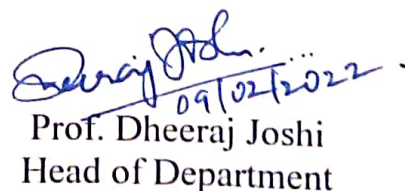 Dheeraj Joshi
09/02/2022
Prof. Dheeraj Joshi
Head of Department